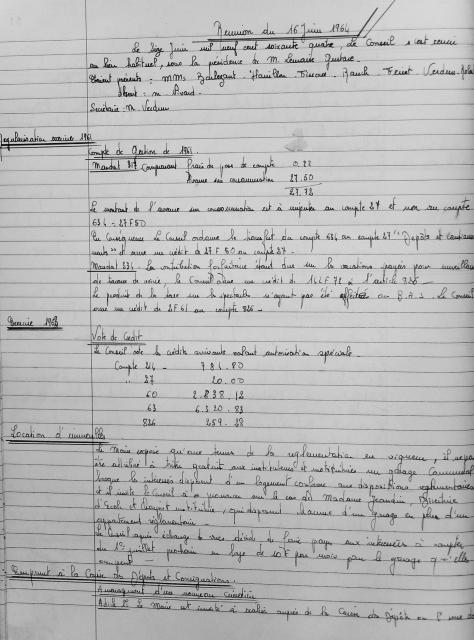 Réunion du 16 Juin 1964
Le seize Juin mil neuf cent soixante quatre, le Conseil s'est réuni
au lieu habituel, sous la présidence de M. Lemaire Gustave.
Étaient présents : MMs
Absent : M.
Secrétaire : M. Verdun
Régularisation exercice 1961
Compte de Gestion de 1961.
Mandat 317 Comprenant Frais de pose de compte 0.22
Avance sur consommation 27.50
27.72
Le montant de l'avance sur consommation est à imputer au compte 27 et non au compte
634 = 27F50
En conséquence le Conseil ordonne le transfert du compte 634 au compte 27 "Dépôts et
" et ouvre un crédit de 27F50 au compte 27.
Mandat 334 - La contribution forfaitaire étant due sur les vacations payées pour surveillance
de travaux de voirie, le Conseil ouvre un crédit de à l'article 826 -
Le produit de la taxe sur les spectacles n'ayant pas été affecté au B.A.S. le Conseil
ouvre un crédit de 2F61 au compte 826 -
Exercice 1963
Vote de Crédit
Le Conseil vote les crédits suivants valant autorisation spéciale.
Compte 214 - 781.80
" 27 20.00
60 2.838.12
63 6.320.83
826 259.28
Location d'immeubles
Le Maire expose qu'aux termes de la réglementation en vigueur, il ne peut
être attribué à titre gratuit aux instituteurs et institutrices un garage Communal
lorsque les intéressés disposent d'un logement conforme aux dispositions réglementaires
et il invite le Conseil à se prononcer sur le cas de Madame Jeandin, Directrice
d'École et institutrice, qui disposent chacune d'un garage en plus d'un
appartement réglementaire.
Le Conseil après échange de vues décide de faire payer aux intéressés à compter
du 1er juillet prochain un loyer de 10F par mois pour le garage qu'elles
occupent.
Emprunt à la Caisse des Dépôts et Consignations.
Aménagement d'un nouveau cimetière
Article 1er Le Maire est invité à réaliser auprès de la Caisse des Dépôts